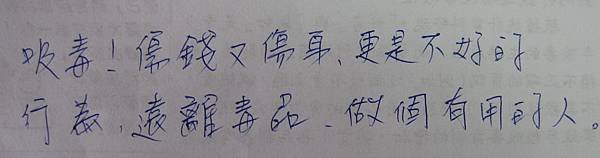 吸毒！傷錢又傷身、更是不好的
行為、遠離毒品、做個有用的人。